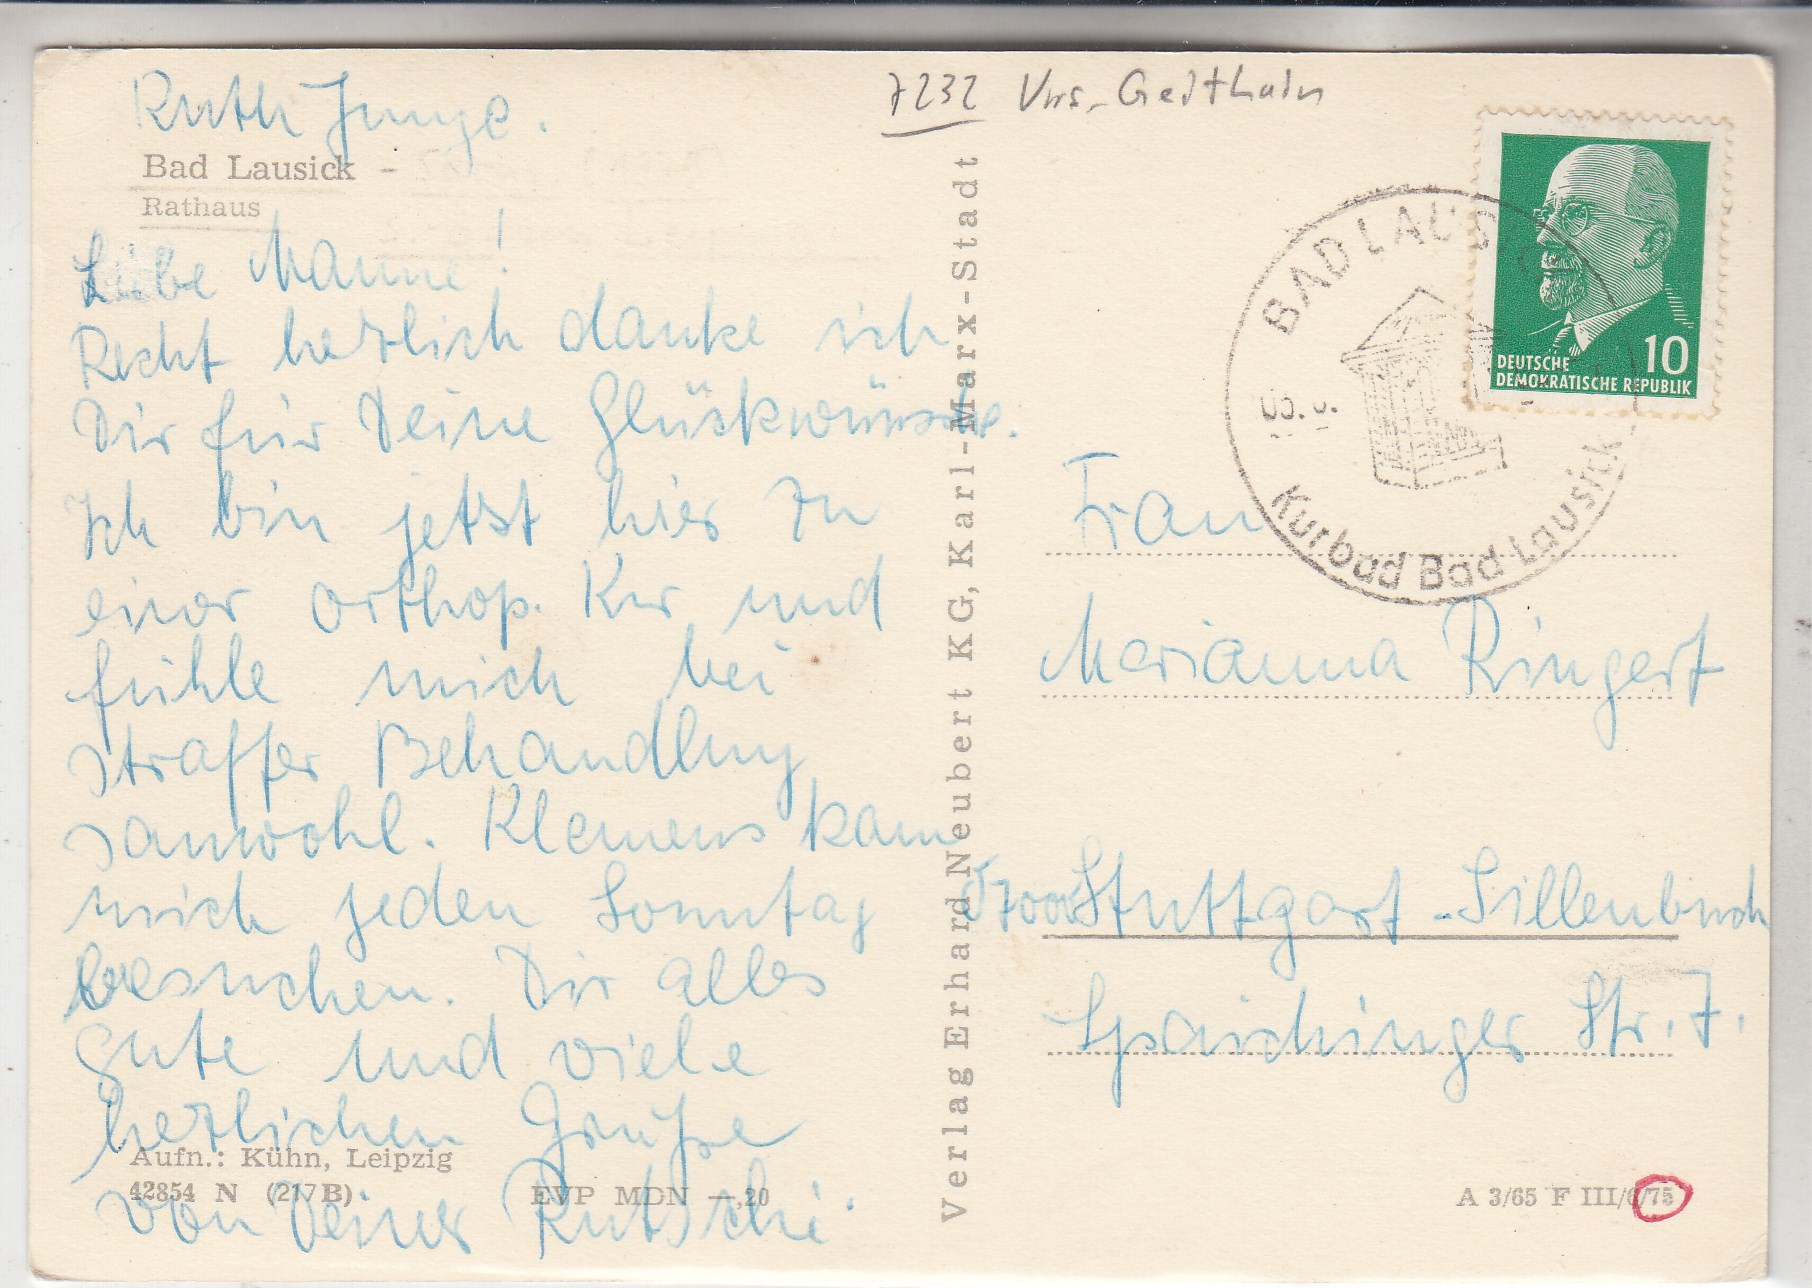 Ruth Junge.
Bad Lausick -
Rathaus
Liebe Manne!
Recht herzlich danke ich
Dir für Deine Glückwünsche.
Ich bin jetzt hier zu
einer orthop. Kur und
fühle mich bei
straffer Behandlung
sauwohl. Klemens kam
mich jeden Sonntag
besuchen. Dir alles
gute und viele
herzlichen Grüße
von Deiner Rutschi.
Aufn.: Kühn, Leipzig
42854 N (217B)
EVP MDN —,20
Verlag Erhard Neubert KG, Karl-Marx-Stadt
7232 Geithain
BAD LAUSICK
Kurbad Bad Lausick
10
DEUTSCHE
DEMOKRATISCHE REPUBLIK
Frau
Marianna Ringert
Stuttgart-Sillenbuch
Spaichinger Str. 7.
A 3/65 F III/6/75